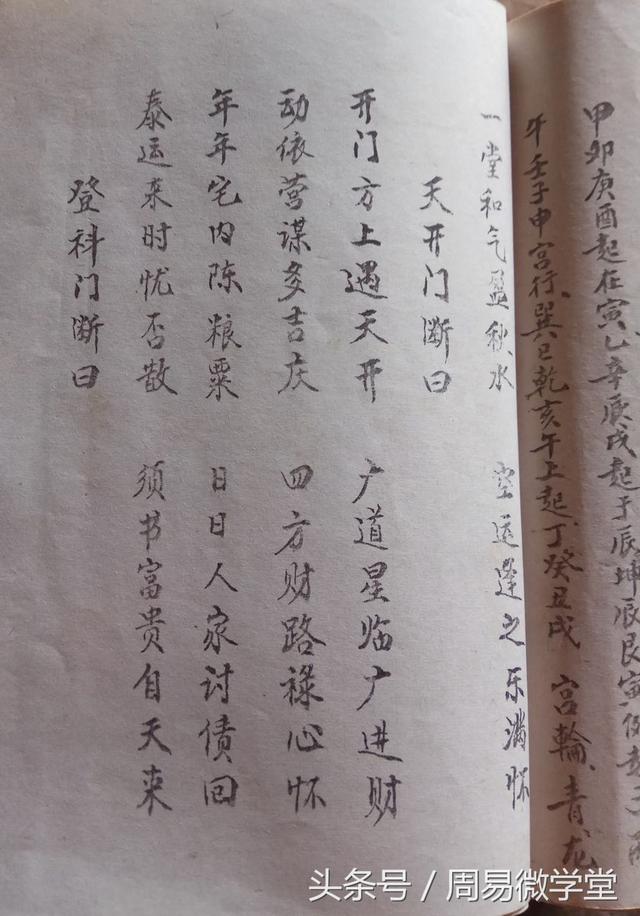 甲卯庚酉起在寅、乙辛辰戌起于辰坤辰艮寅
午壬子申宫行、巽巳乾亥午上起、丁癸丑戌 宫輪、青龙
一堂和气盈秋水 空运逢之乐满怀
天开门断曰
开门方上遇天开 广道星临广进财
动依营谋多吉庆 四方财路禄心怀
年年宅内陈粮粟 日日人家讨债回
泰运来时忧否散 须书富贵自天来
登科门断曰
头条号 / 周易微学堂